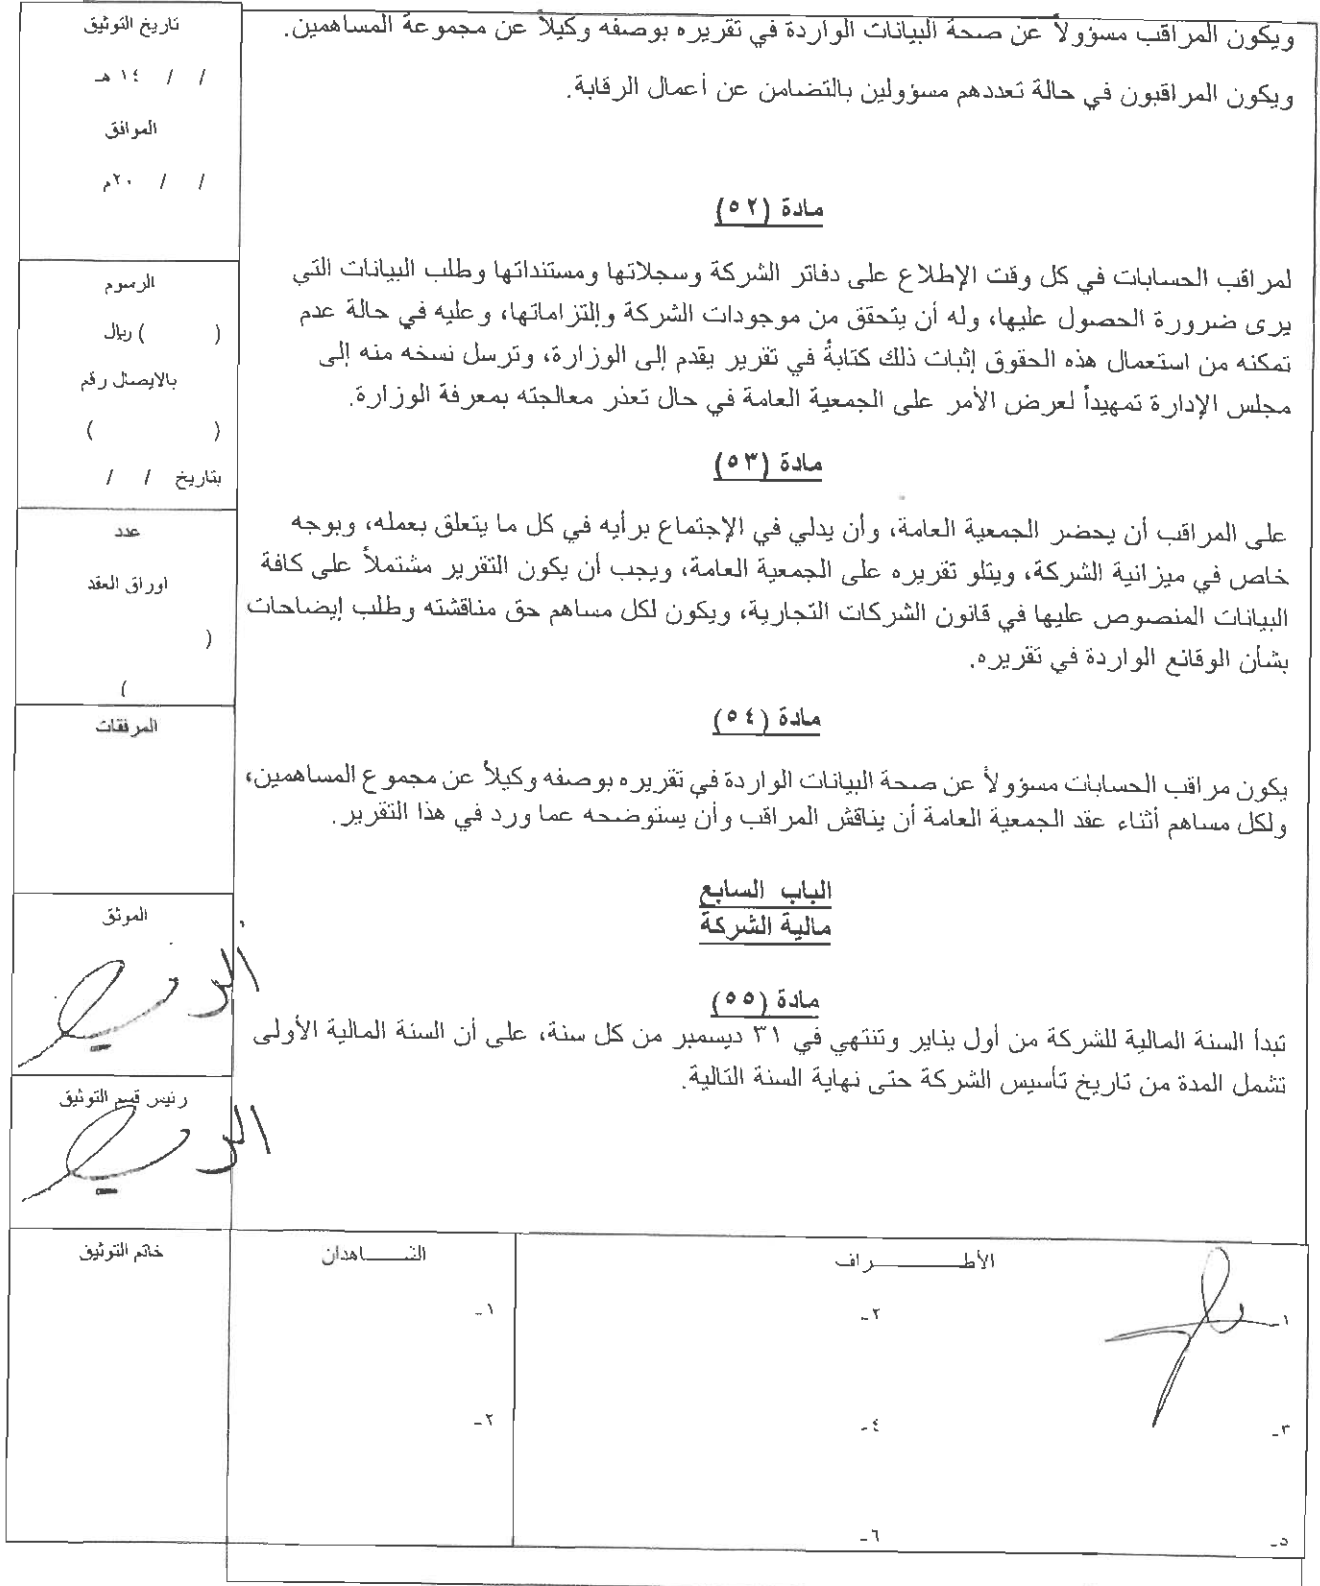 ويكون المراقب مسؤولاً عن صحة البيانات الواردة في تقريره بوصفه وكيلاً عن مجموعة المساهمين.
ويكون المراقبون في حالة تعددهم مسؤولين بالتضامن عن أعمال الرقابة.
مادة (٥٢)
لمراقب الحسابات في كل وقت الإطلاع على دفاتر الشركة وسجلاتها ومستنداتها وطلب البيانات التي
يرى ضرورة الحصول عليها، وله أن يتحقق من موجودات الشركة وإلتزاماتها، وعليه في حالة عدم
تمكنه من استعمال هذه الحقوق إثبات ذلك كتابةً في تقرير يقدم إلى الوزارة، وترسل نسخه منه إلى
مجلس الإدارة تمهيداً لعرض الأمر على الجمعية العامة في حال تعذر معالجته بمعرفة الوزارة.
مادة (٥٣)
على المراقب أن يحضر الجمعية العامة، وأن يدلي في الإجتماع برأيه في كل ما يتعلق بعمله، وبوجه
خاص في ميزانية الشركة، ويتلو تقريره على الجمعية العامة، ويجب أن يكون التقرير مشتملاً على كافة
البيانات المنصوص عليها في قانون الشركات التجارية، ويكون لكل مساهم حق مناقشته وطلب إيضاحات
بشأن الوقائع الواردة في تقريره.
مادة (٥٤)
يكون مراقب الحسابات مسؤولاً عن صحة البيانات الواردة في تقريره بوصفه وكيلاً عن مجموع المساهمين،
ولكل مساهم أثناء عقد الجمعية العامة أن يناقش المراقب وأن يستوضحه عما ورد في هذا التقرير.
الباب السابع
مالية الشركة
مادة (٥٥)
تبدأ السنة المالية للشركة من أول يناير وتنتهي في ٣١ ديسمبر من كل سنة، على أن السنة المالية الأولى
تشمل المدة من تاريخ تأسيس الشركة حتى نهاية السنة التالية.
تاريخ التوثيق
/ / ١٤ هـ
الموافق
/ / ٢٠م
الرسوم
( ) ريال
بالايصال رقم
( )
بتاريخ / /
عدد
اوراق العقد
(
)
المرفقات
الموثق
رئيس قسم التوثيق
الأطـــــــراف
١-
٢-
٣-
٤-
٥-
٦-
الشـــــاهدان
١-
٢-
خاتم التوثيق